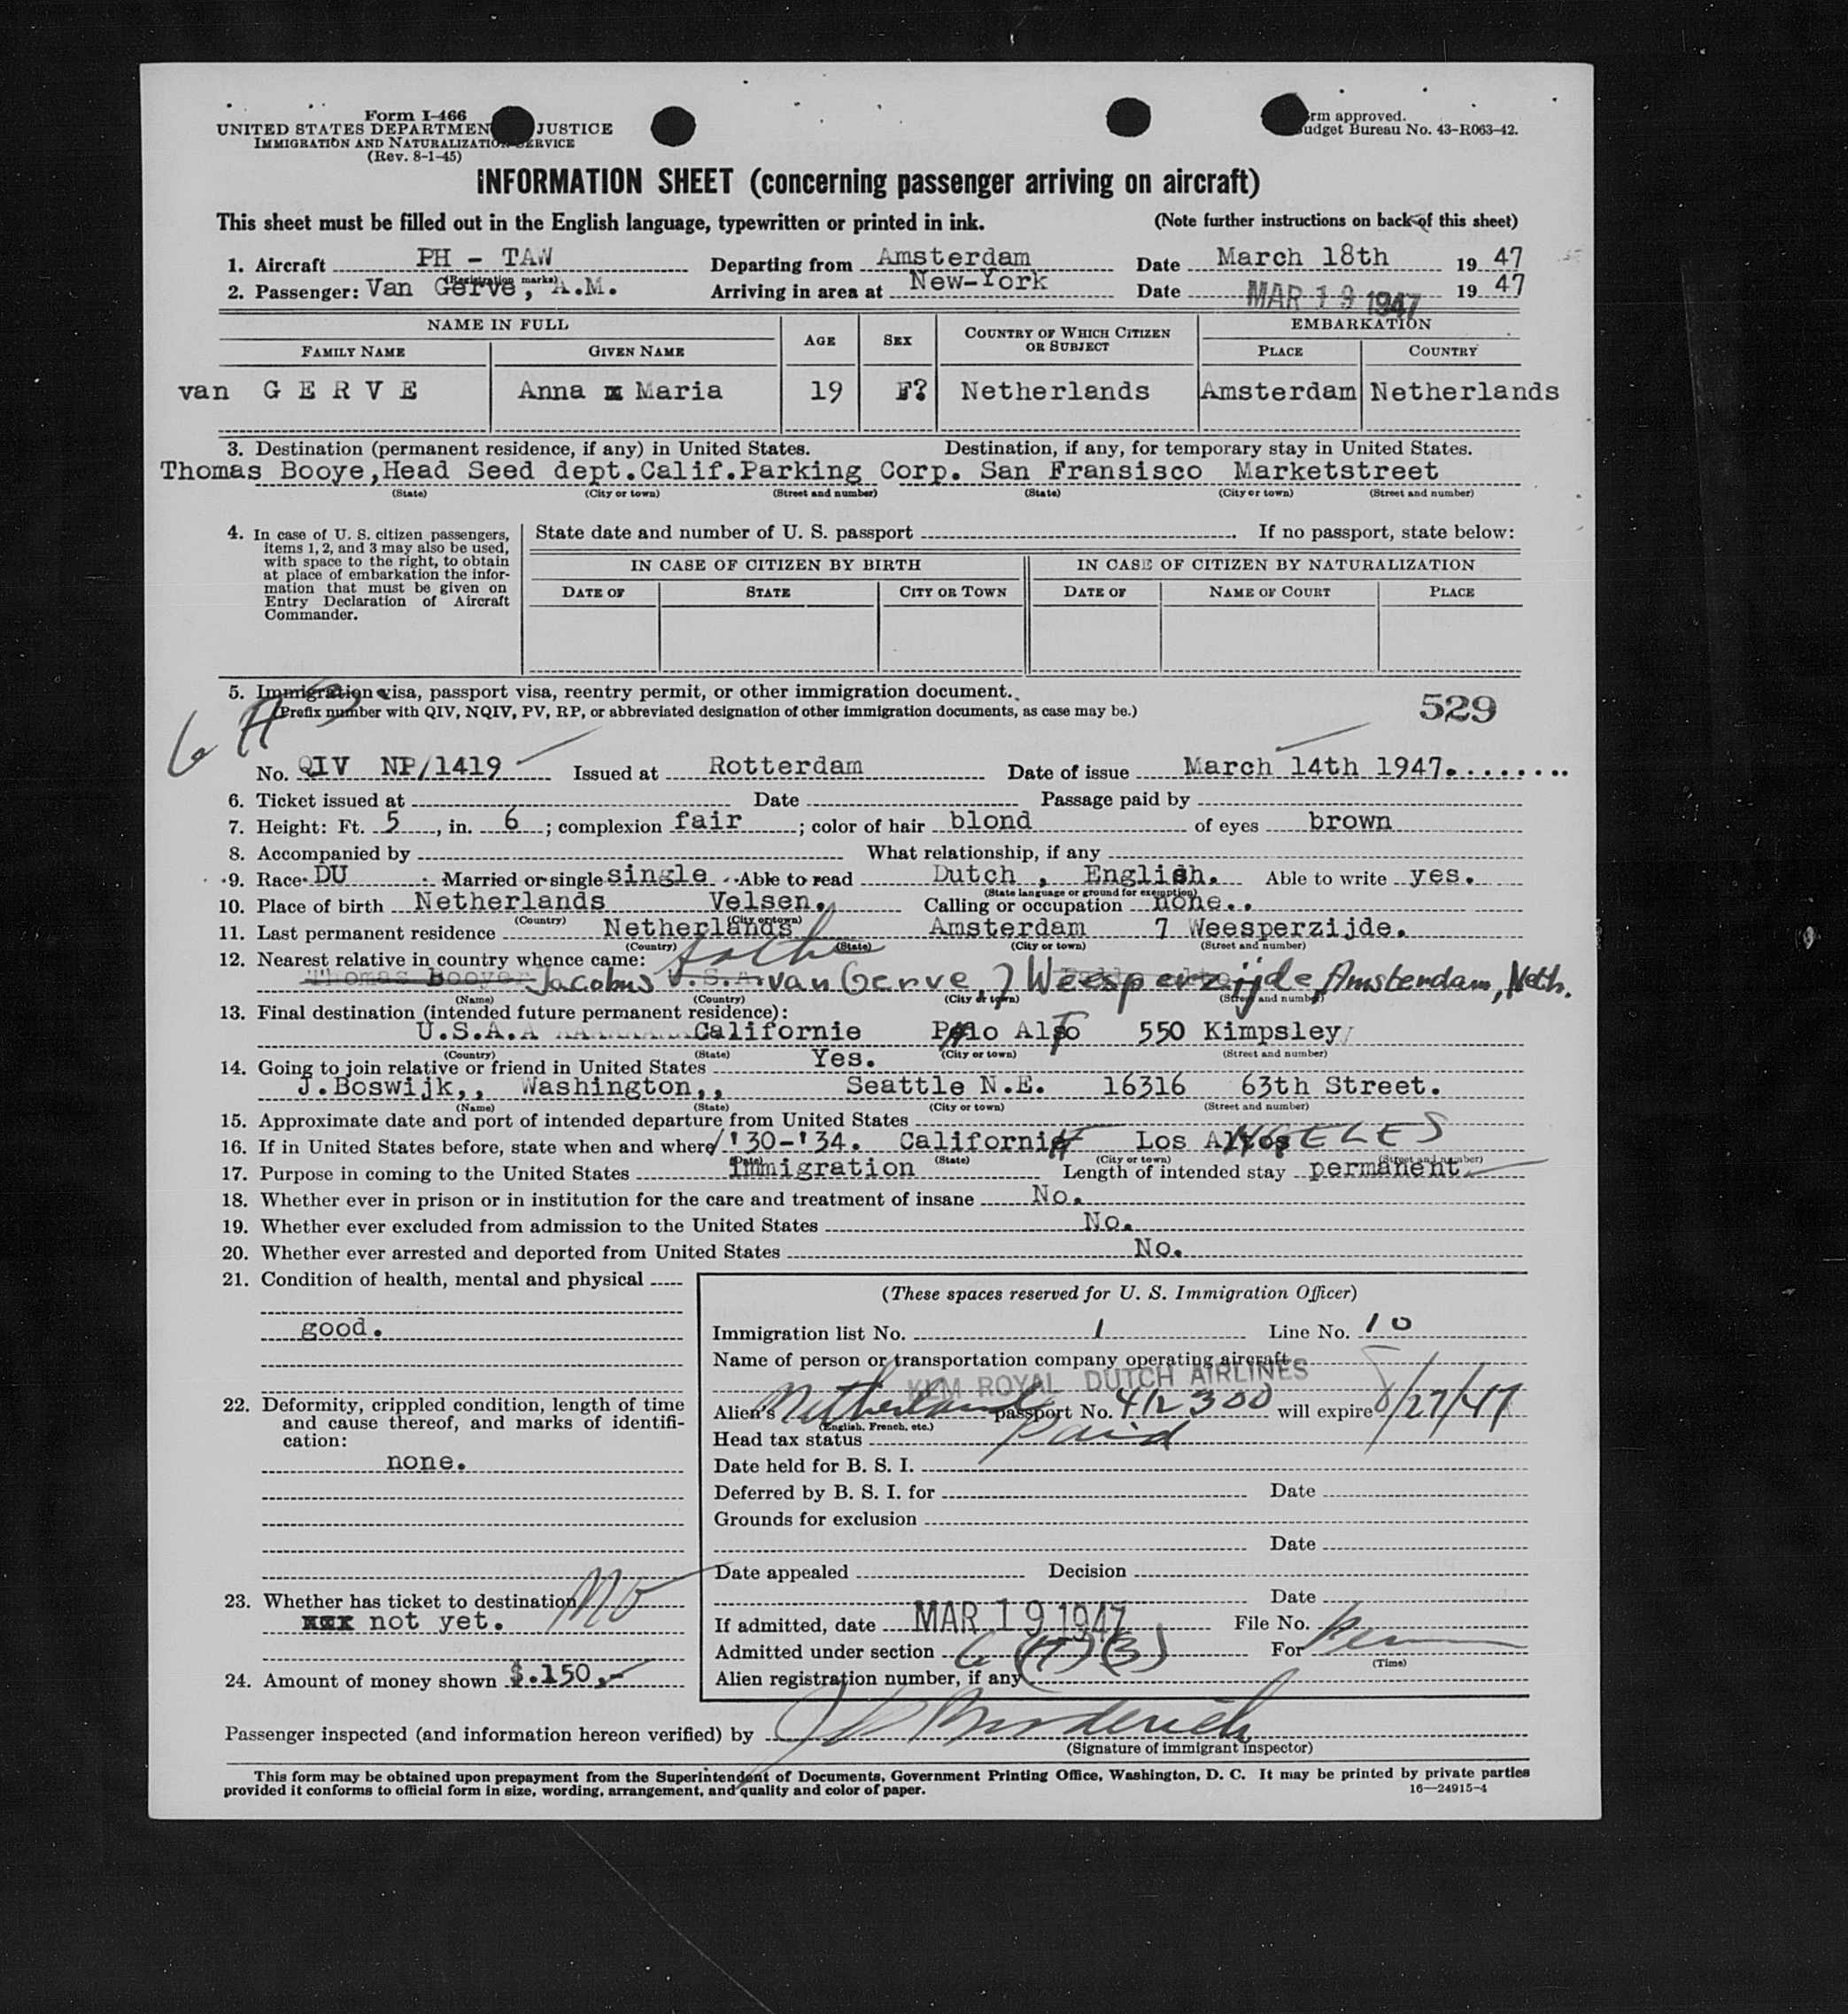 Form I-466
UNITED STATES DEPARTMEN JUSTICE
IMMIGRATION AND NATURALIZATION SERVICE
(Rev. 8-1-45)
rm approved.
udget Bureau No. 43-R063-42.
INFORMATION SHEET (concerning passenger arriving on aircraft)
This sheet must be filled out in the English language, typewritten or printed in ink. (Note further instructions on back of this sheet)
1. Aircraft PH - TAW Departing from Amsterdam Date March 18th 19 47
(Registration marks)
2. Passenger: Van Gerve, A.M. Arriving in area at New-York Date MAR 19 1947 19 47
NAME IN FULL AGE SEX COUNTRY OF WHICH CITIZEN OR SUBJECT EMBARKATION
FAMILY NAME GIVEN NAME PLACE COUNTRY
van GERVE Anna Maria 19 F? Netherlands Amsterdam Netherlands
3. Destination (permanent residence, if any) in United States. Destination, if any, for temporary stay in United States.
Thomas Booye,Head Seed dept.Calif.Parking Corp. San Fransisco Marketstreet
(State) (City or town) (Street and number) (State) (City or town) (Street and number)
4. In case of U. S. citizen passengers,
items 1, 2, and 3 may also be used,
with space to the right, to obtain
at place of embarkation the infor-
mation that must be given on
Entry Declaration of Aircraft
Commander.
State date and number of U. S. passport . If no passport, state below:
IN CASE OF CITIZEN BY BIRTH IN CASE OF CITIZEN BY NATURALIZATION
DATE OF STATE CITY OR TOWN DATE OF NAME OF COURT PLACE
5. Immigration visa, passport visa, reentry permit, or other immigration document.
(Prefix number with QIV, NQIV, PV, RP, or abbreviated designation of other immigration documents, as case may be.)
529
6 A 3
No. QIV NP/1419 Issued at Rotterdam Date of issue March 14th 1947........
6. Ticket issued at Date Passage paid by
7. Height: Ft. 5, in. 6; complexion fair; color of hair blond of eyes brown
8. Accompanied by What relationship, if any
9. Race DU Married or single single Able to read Dutch , English. Able to write yes.
(State language or ground for exemption)
10. Place of birth Netherlands Velsen. Calling or occupation none..
(Country) (City or town)
11. Last permanent residence Netherlands Amsterdam 7 Weesperzijde.
(Country) (State) (City or town) (Street and number)
12. Nearest relative in country whence came: father
Thomas Booyer U.S.A. Jacobus van Gerve, 7 Weesperzijde, Amsterdam, Neth.
(Name) (Country) (City or town) (Street and number)
13. Final destination (intended future permanent residence):
U.S.A. Californie Palo Alto 550 Kimpsley
(Country) (State) (City or town) (Street and number)
14. Going to join relative or friend in United States Yes.
J.Boswijk,, Washington,, Seattle N.E. 16316 63th Street.
(Name) (State) (City or town) (Street and number)
15. Approximate date and port of intended departure from United States
16. If in United States before, state when and where '30-'34. California Los ANGELES
(Date) (State) (City or town) (Street and number)
17. Purpose in coming to the United States immigration Length of intended stay permanent.
18. Whether ever in prison or in institution for the care and treatment of insane No.
19. Whether ever excluded from admission to the United States No.
20. Whether ever arrested and deported from United States No.
21. Condition of health, mental and physical
good.
22. Deformity, crippled condition, length of time
and cause thereof, and marks of identifi-
cation:
none.
23. Whether has ticket to destination No
xxx not yet.
24. Amount of money shown $.150,-
(These spaces reserved for U. S. Immigration Officer)
Immigration list No. 1 Line No. 10
Name of person or transportation company operating aircraft
KLM ROYAL DUTCH AIRLINES
Alien's Netherlands passport No. 412300 will expire 8/27/47
(English, French, etc.)
Head tax status Paid
Date held for B. S. I.
Deferred by B. S. I. for Date
Grounds for exclusion
Date
Date appealed Decision
Date
If admitted, date MAR 19 1947 File No.
Admitted under section 6 (A)(3) For Perm
(Time)
Alien registration number, if any
Passenger inspected (and information hereon verified) by
(Signature of immigrant inspector)
This form may be obtained upon prepayment from the Superintendent of Documents, Government Printing Office, Washington, D. C. It may be printed by private parties
provided it conforms to official form in size, wording, arrangement, and quality and color of paper. 16—24915-4